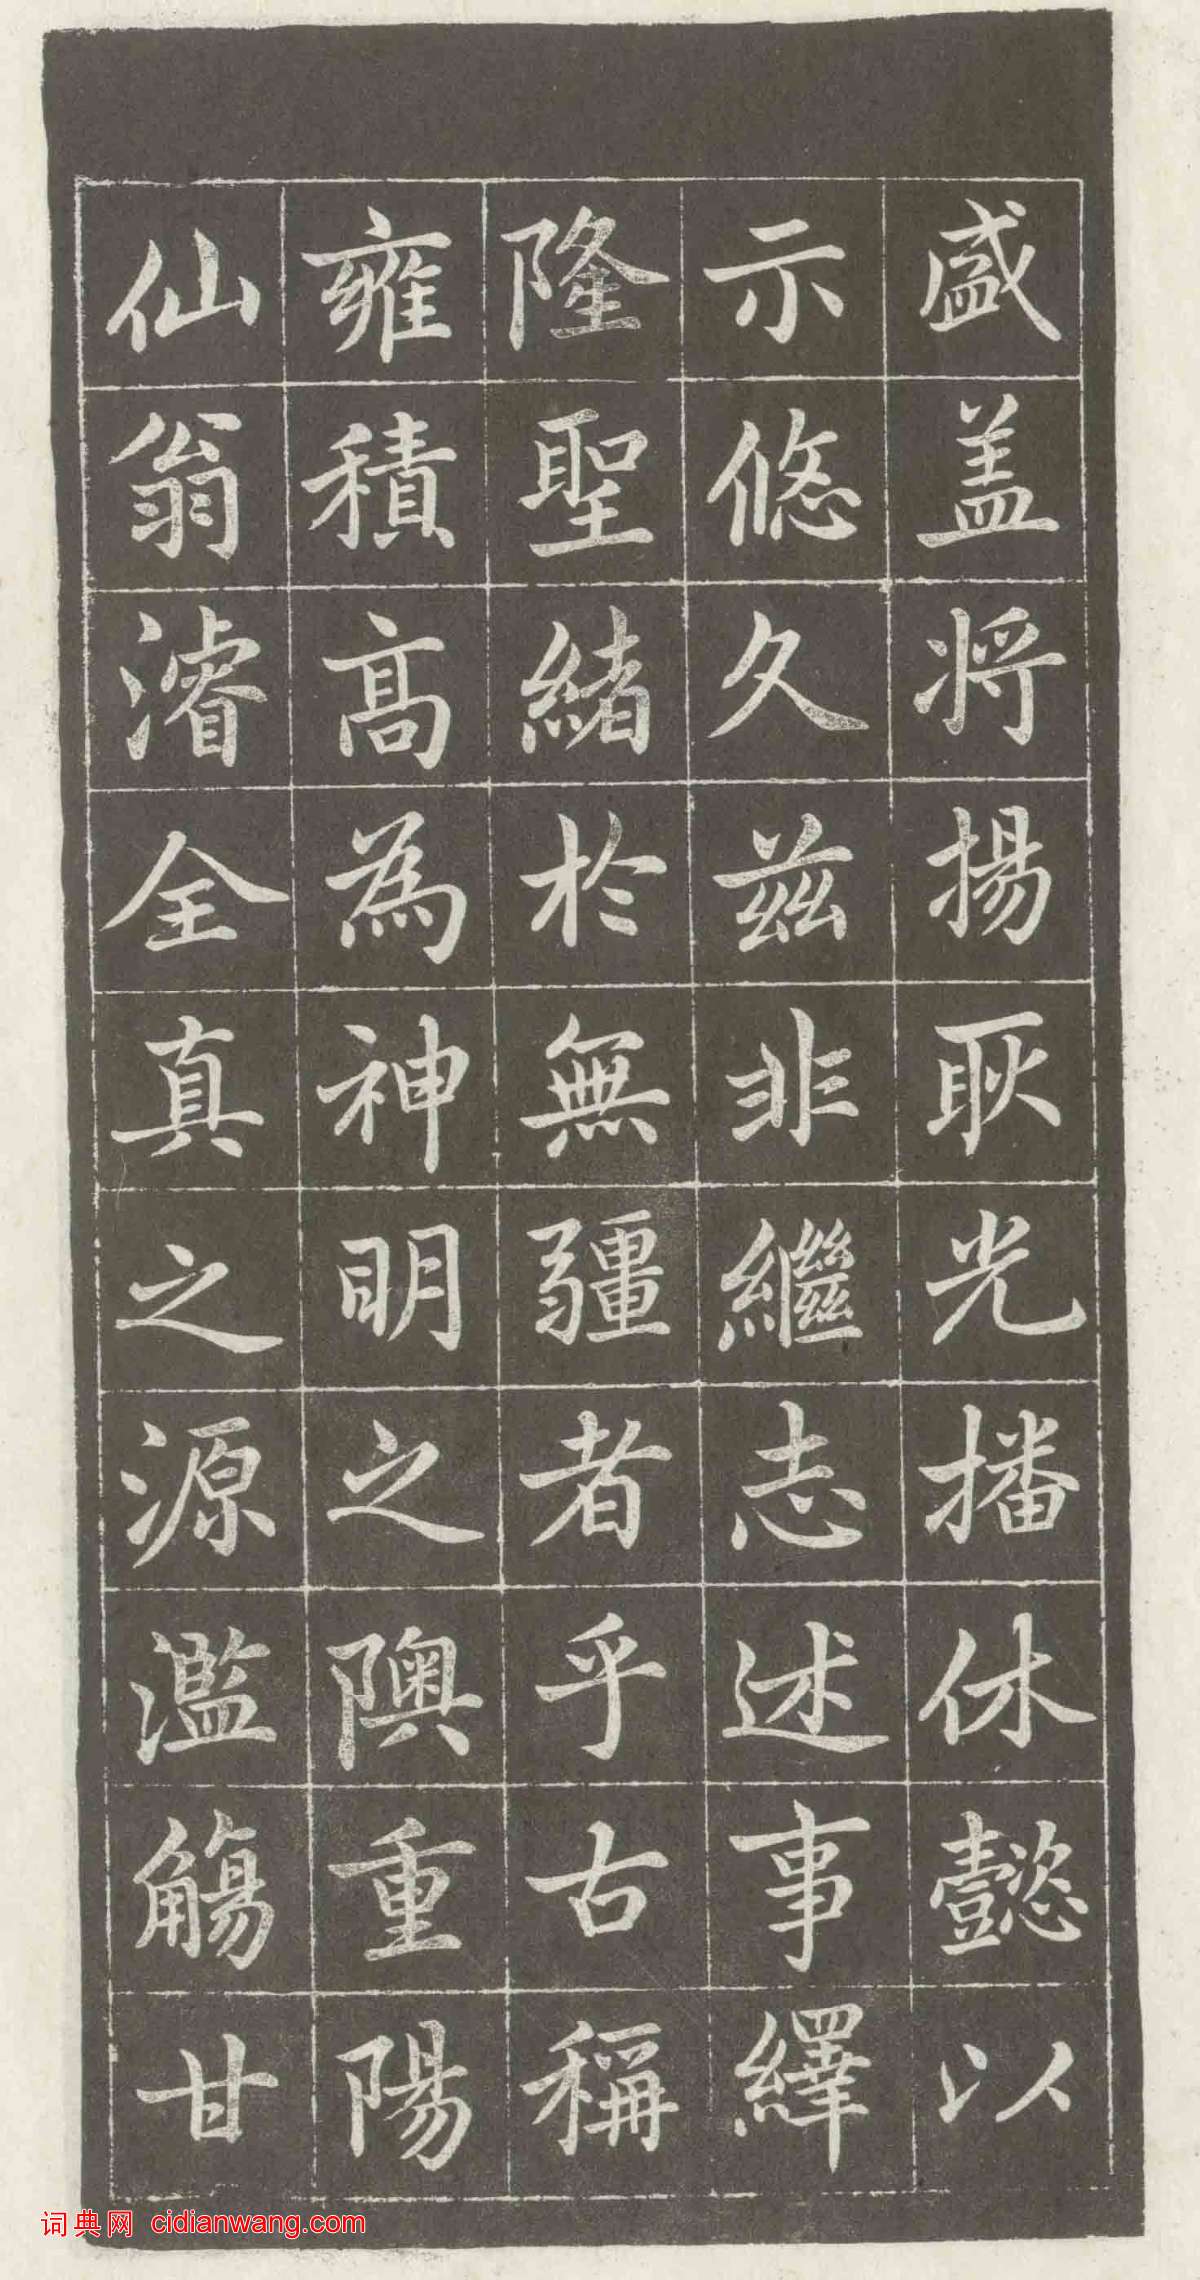 盛盖将揚耿光播休懿以
示悠久兹非繼志述事繹
隆聖緒於無疆者乎古稱
雍積高為神明之隩重陽
仙翁濬全真之源濫觴甘
词典网 cidianwang.com